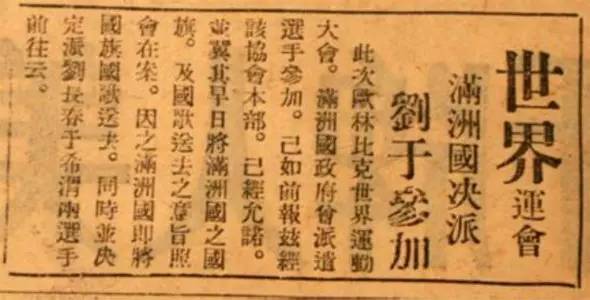 世界運會
滿洲國決派
劉于參加
此次歐林比克世界運動
大會。滿洲國政府會派遣
選手參加。己如前報茲經
該協會本部。己經允諾。
並冀其早日將滿洲國之國
旗。及國歌送去之意旨照
會在案。因之滿洲國即將
國旗國歌送去。同時並决
定派劉長春于希渭兩選手
前往云。